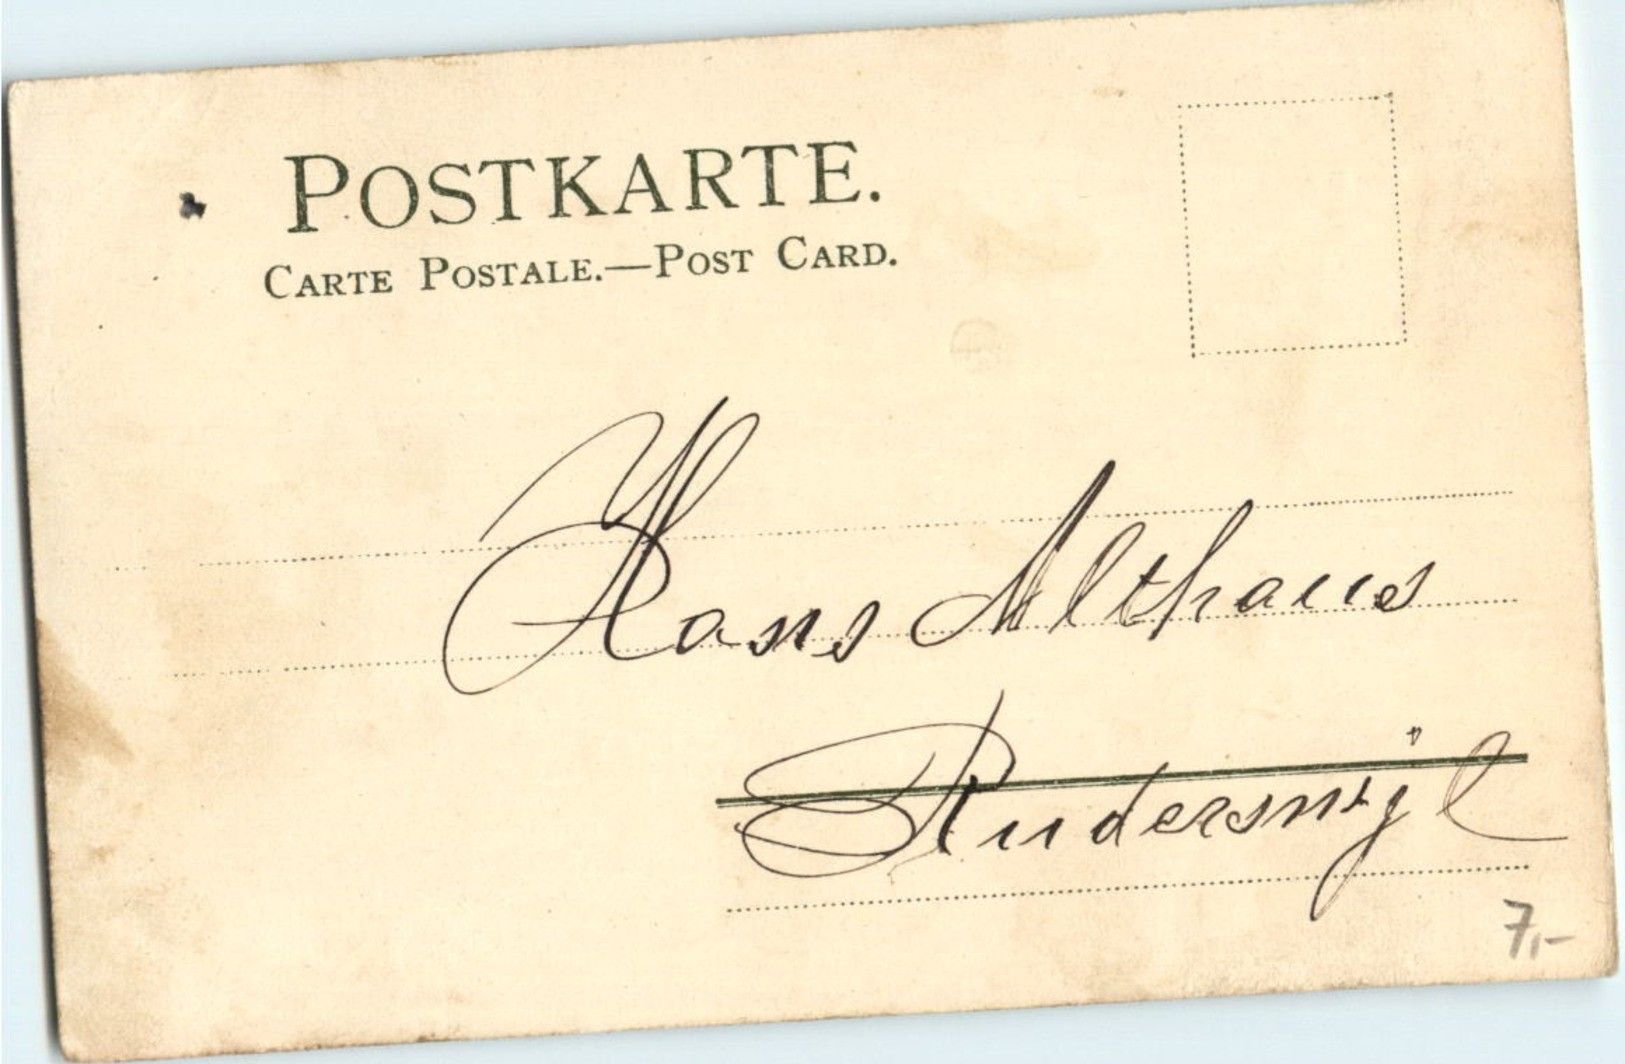 POSTKARTE.
CARTE POSTALE.—POST CARD.
Hans Althaus
Ruderswyl
7,-